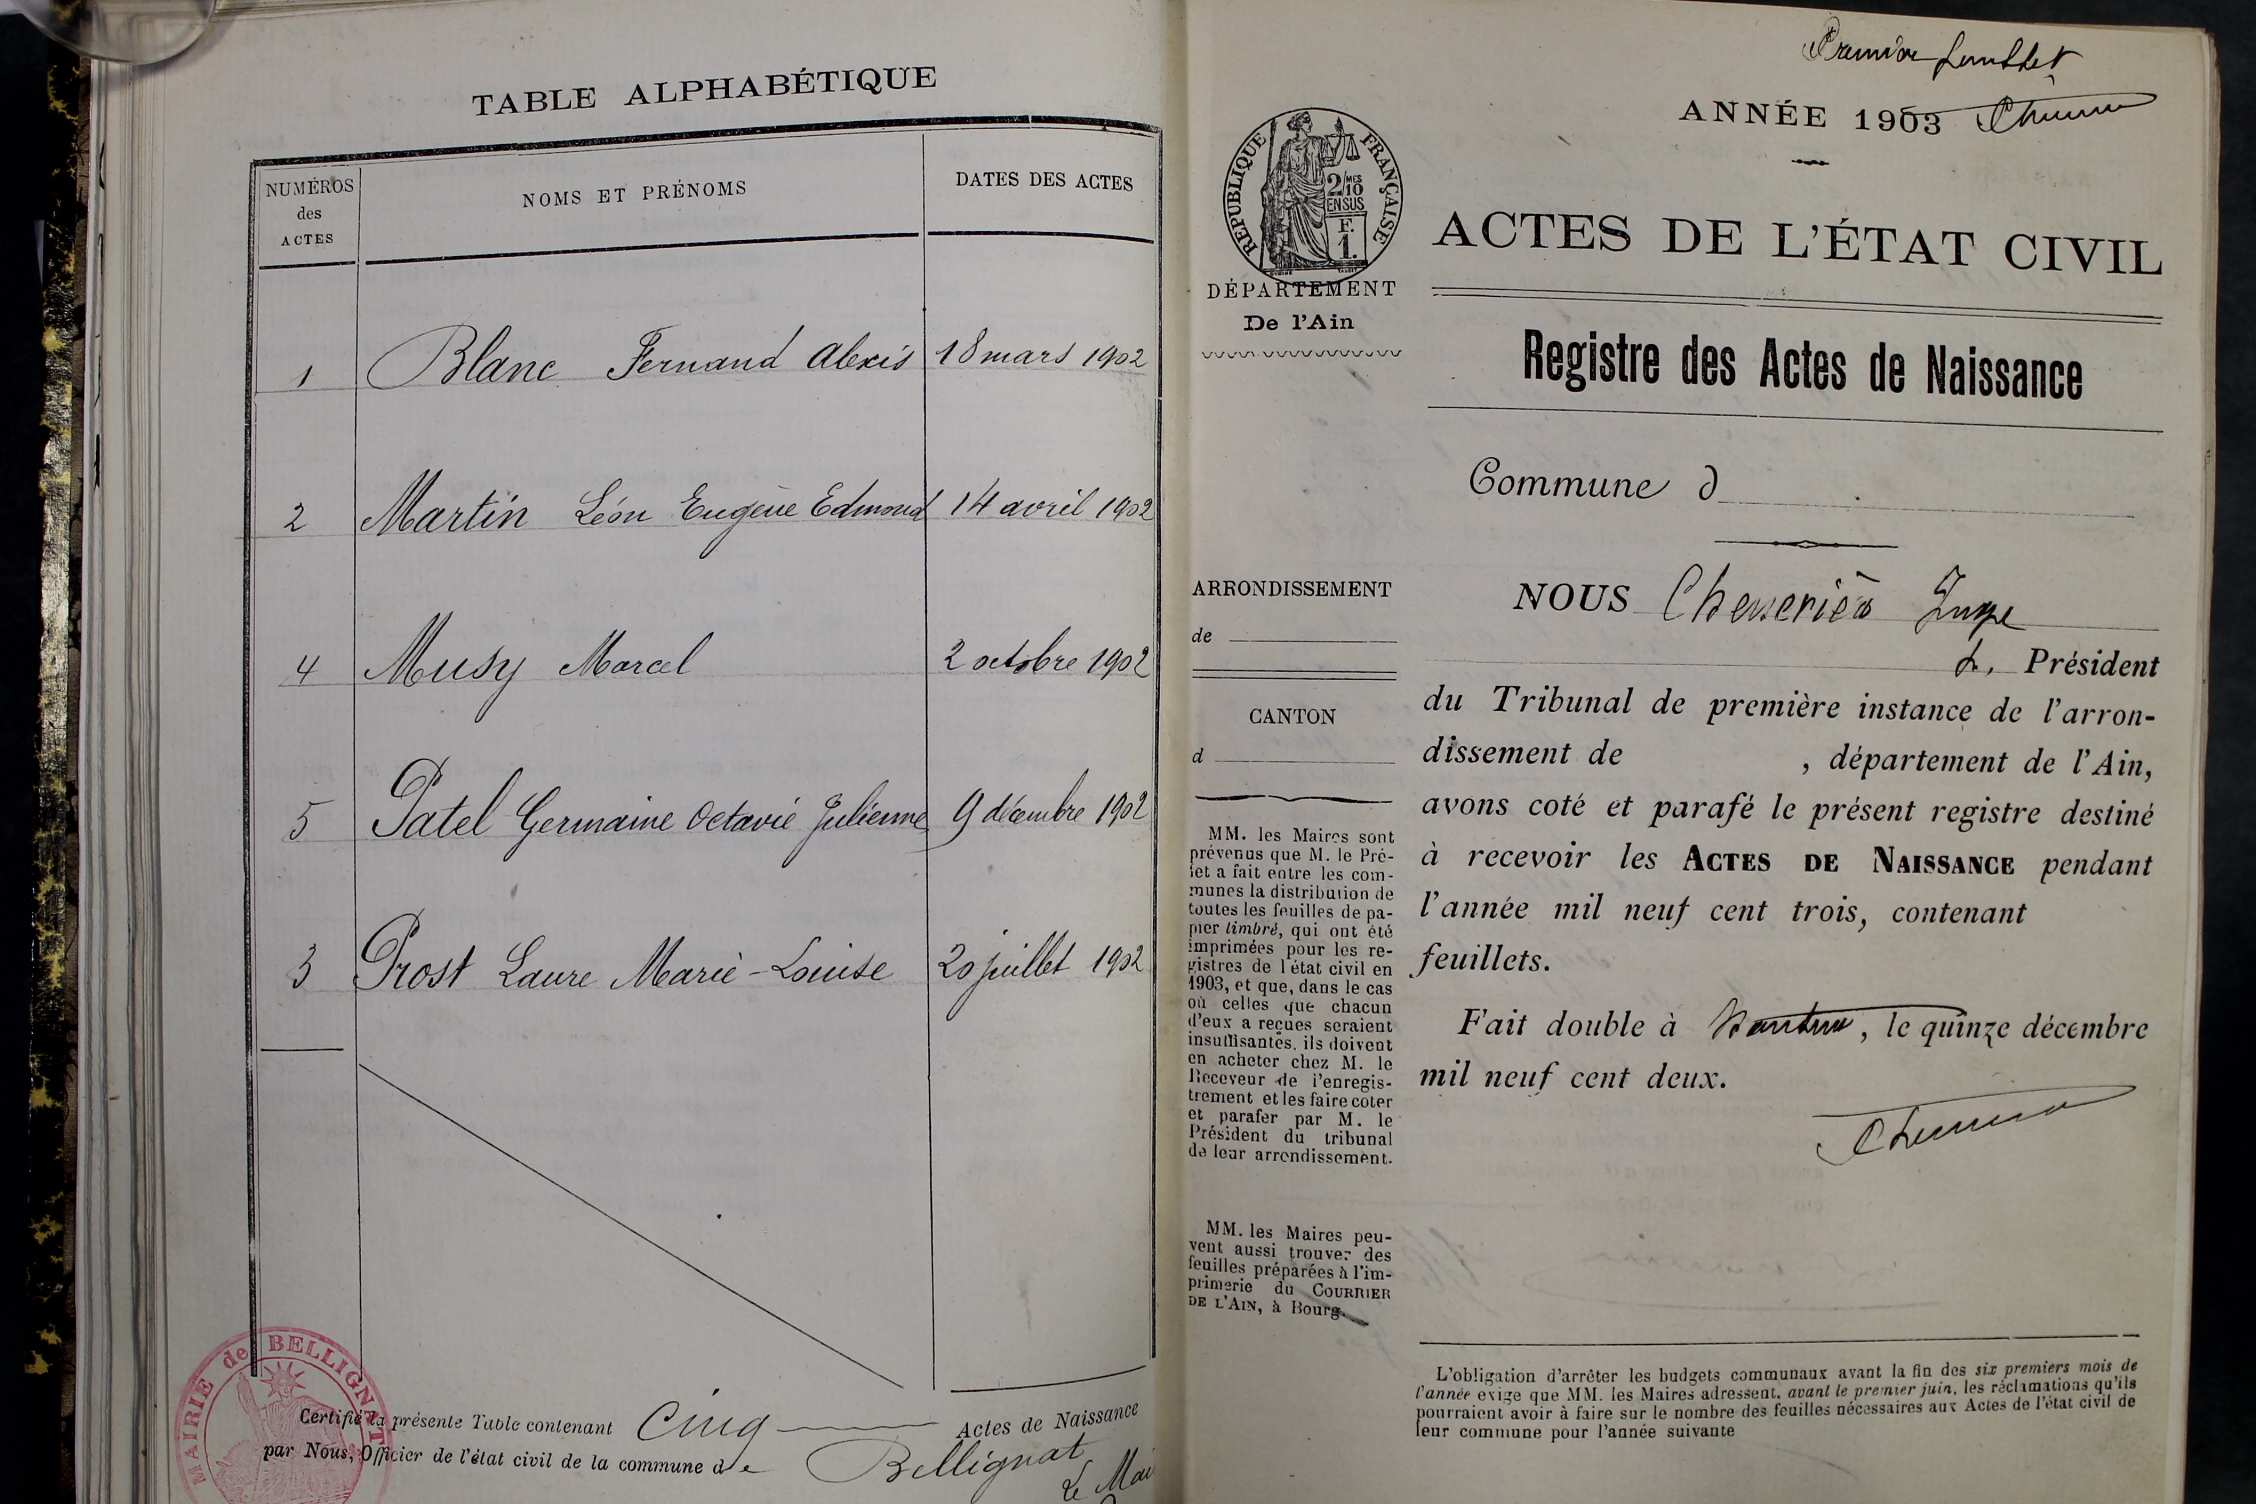 TABLE ALPHABÉTIQUE
NUMÉROS
des
ACTES
NOMS ET PRÉNOMS
DATES DES ACTES
1 Blanc Fernand Alexis 18 mars 1902
2 Martin Léon Eugène Edmond 14 avril 1902
4 Musy Marcel 2 octobre 1902
5 Patel Germaine Octavie Julienne 9 décembre 1902
3 Prost Laure Marie-Louise 20 juillet 1902
Certifié la présente Table contenant Cinq Actes de Naissance
par Nous, Officier de l'état civil de la commune de Bellignat
Le Mai
MAIRIE de BELLIGNAT
Premier
ANNÉE 1903
RÉPUBLIQUE FRANÇAISE
2/MES
10
EN SUS
F.
1.
DÉPARTEMENT
De l'Ain
ARRONDISSEMENT
de
CANTON
d
MM. les Maires sont
prévenus que M. le Pré-
fet a fait entre les com-
munes la distribution de
toutes les feuilles de pa-
pier timbré, qui ont été
imprimées pour les re-
gistres de l'état civil en
1903, et que, dans le cas
où celles que chacun
d'eux a reçues seraient
insuffisantes, ils doivent
en acheter chez M. le
Receveur de l'enregis-
trement et les faire coter
et parafer par M. le
Président du tribunal
de leur arrondissement.
MM. les Maires peu-
vent aussi trouver des
feuilles préparées à l'im-
primerie du COURRIER
DE L'AIN, à Bourg.
ACTES DE L'ÉTAT CIVIL
Registre des Actes de Naissance
Commune d
NOUS Juge
Président
du Tribunal de première instance de l'arron-
dissement de , département de l'Ain,
avons coté et parafé le présent registre destiné
à recevoir les ACTES DE NAISSANCE pendant
l'année mil neuf cent trois, contenant
feuillets.
Fait double à Nantua, le quinze décembre
mil neuf cent deux.
L'obligation d'arrêter les budgets communaux avant la fin des six premiers mois de
l'année exige que MM. les Maires adressent, avant le premier juin, les réclamations qu'ils
pourraient avoir à faire sur le nombre des feuilles nécessaires aux Actes de l'état civil de
leur commune pour l'année suivante